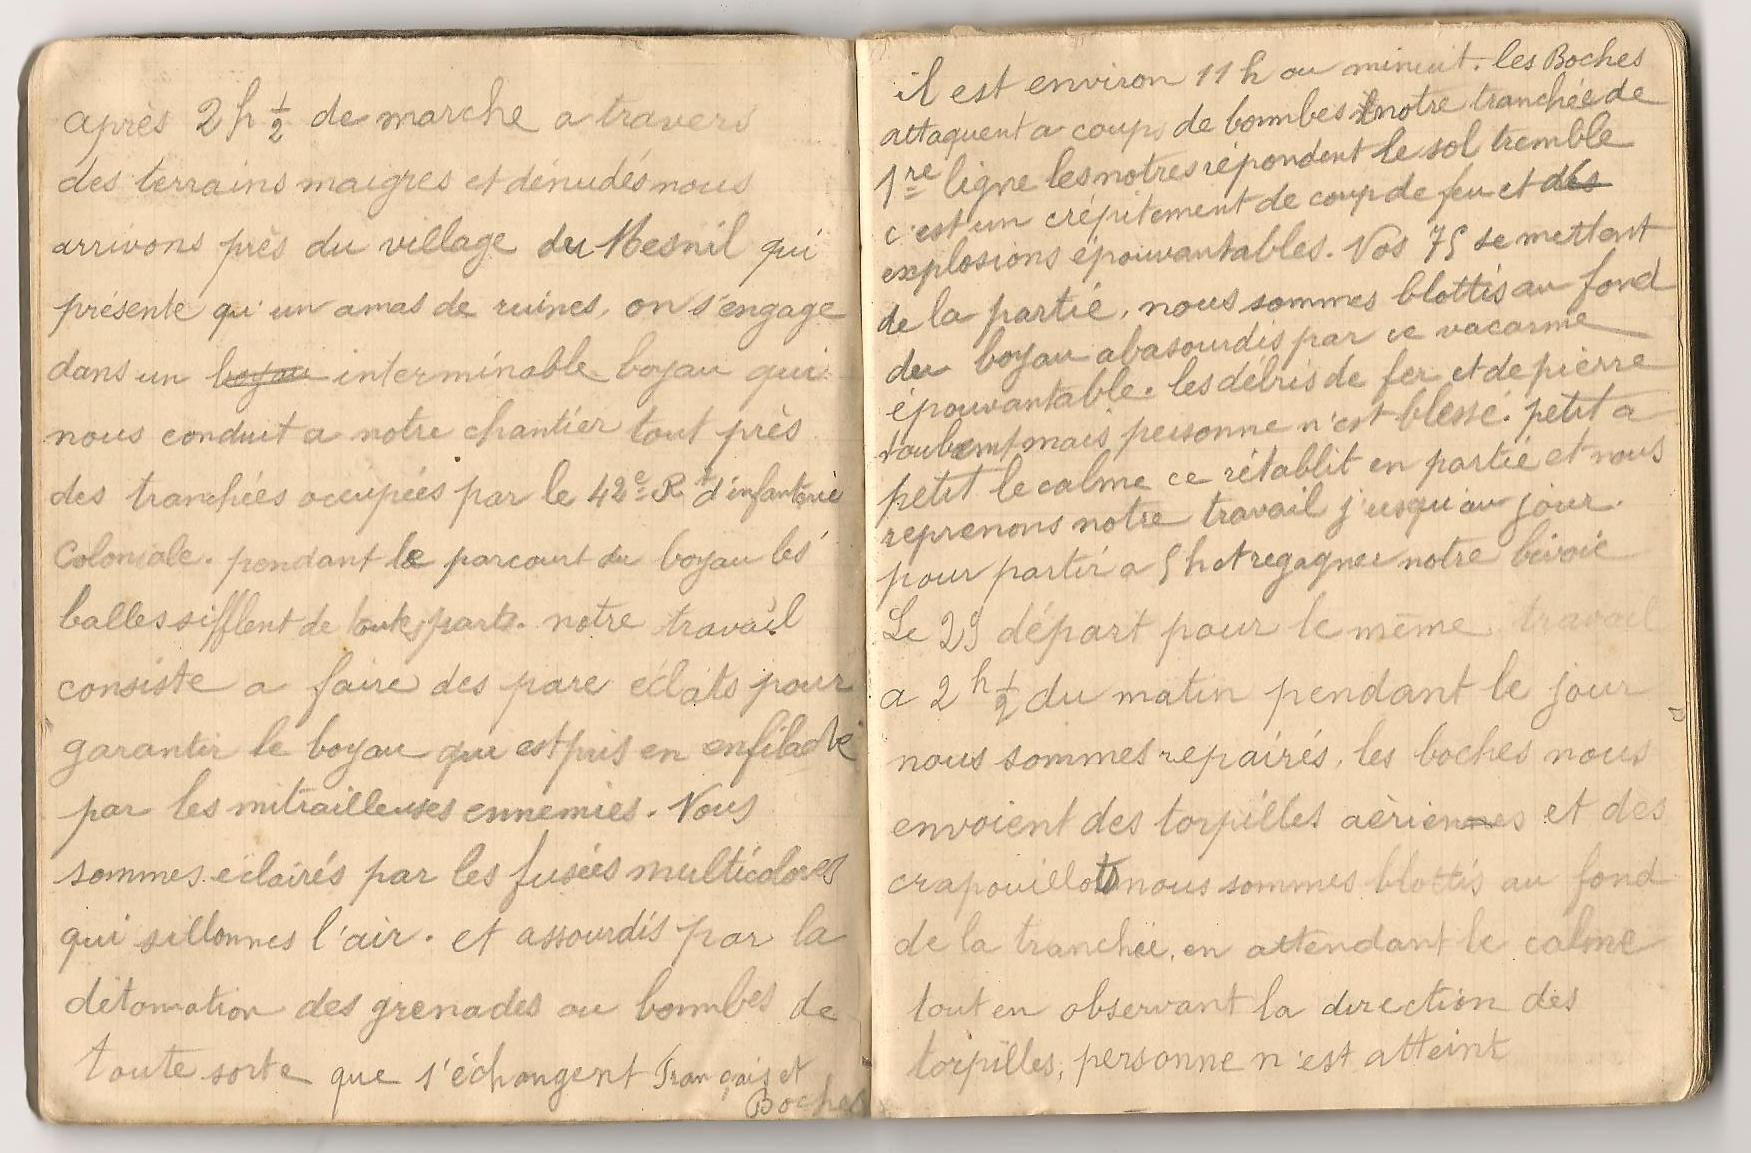 après 2 h ½ de marche a travers
des terrains maigres et dénudés nous
arrivons près du village du Mesnil qui
présente qu'un amas de ruines, on s'engage
dans un boyau interminable boyau qui
nous conduit a notre chantier tout près
des tranchées occupées par le 42e Rt d'infanterie
Coloniale. pendant le parcourt du boyau les
balles sifflent de toutes parts. notre travail
consiste a faire des pare éclats pour
garantir le boyau qui est pris en enfilade
par les mitrailleuses ennemies. Nous
sommes eclairés par les fusées multicolores
qui sillonnes l'air. et assourdis par la
détonation des grenades ou bombes de
toute sorte que s'échangent Français et
Boches
il est environ 11 h ou minuit. les Boches
attaquent a coups de bombes notre tranchée de
1re ligne les notres répondent le sol tremble
c'est un crépitement de coup de feu et des
explosions épouvantables. Nos 75 se mettent
de la partie, nous sommes blottis au fond
du boyau abasourdis par ce vacarme
épouvantable. les débris de fer et de pierre
mais personne n'est blessé. petit a
petit le calme ce rétablit en partie et nous
reprenons notre travail jusqu'au jour.
pour partir a 5 h et regagner notre bivoic
Le 29 départ pour le même travail
a 2 h ½ du matin pendant le jour
nous sommes repairés, les boches nous
envoient des torpilles aériennes et des
crapouillots nous sommes blottis au fond
de la tranchée, en attendant le calme
tout en observant la direction des
torpilles, personne n'est atteint